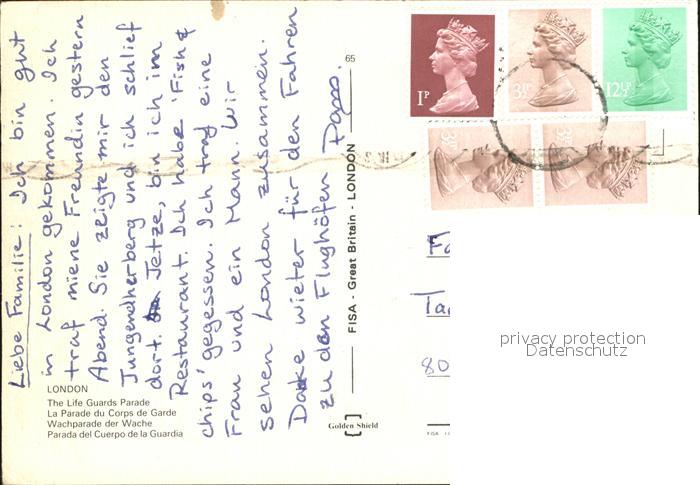 Liebe Familie! Ich bin gut
in London gekommen. Ich
traf miene Freundin gestern
Abend. Sie zeigte mir den
Jungendherberg und ich schlief
dort. Jetze, bin ich im
Restaurant. Ich habe 'Fish &
chips' gegessen. Ich traf eine
Frau und ein Mann. Wir
sehen London zusammen.
Danke wieter für den Fahren
zu den Flughöfen
LONDON
The Life Guards Parade
La Parade du Corps de Garde
Wachparade der Wache
Parada del Cuerpo de la Guardia
65
FISA - Great Britain - LONDON
Golden Shield
1P
3½P
12½P
3½P
3½P
80
privacy protection
Datenschutz